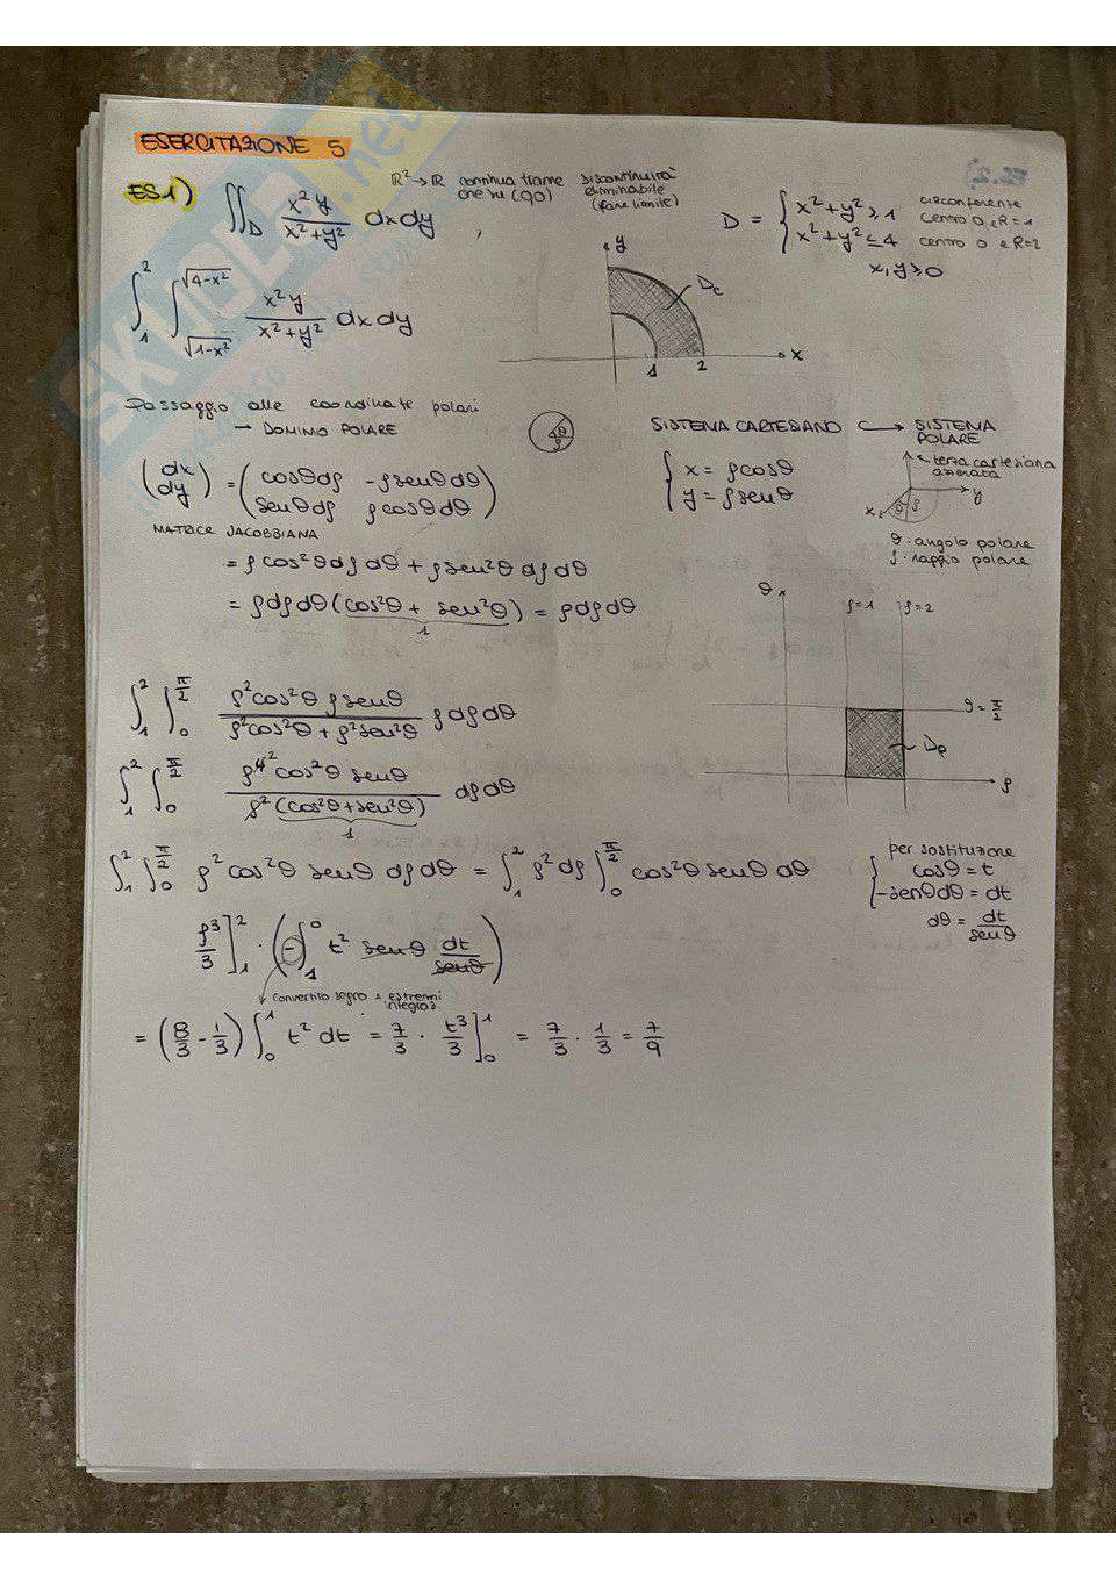 ESERCITAZIONE 5
ES1) ∬_D x²y / (x²+y²) dxdy ,
R²→R continua tranne che su (0,0)
DISCONTINUITÀ eliminabile (fare limite)
D = { x²+y² ≥ 1 circonferente centro 0 e R=1
x²+y² ≤ 4 centro 0 e R=2
x, y ≥ 0
∫₁² ∫_{√1-x²}^{√4-x²} x²y / (x²+y²) dxdy
y
Dc
1 2 x
Passaggio alle coordinate polari
→ DOMINIO POLARE
θ
ρ
SISTEMA CARTESIANO ⟶ SISTEMA POLARE
(dx dy) = (cosθdρ -ρsenθdθ
senθdρ ρcosθdθ)
MATRICE JACOBBIANA
{ x = ρcosθ
y = ρsenθ
z terza cartesiana
x y
θ: angolo polare
ρ: raggio polare
= ρcos²θdρdθ + ρsen²θdρdθ
= ρdρdθ(cos²θ + sen²θ) = ρdρdθ
1
θ
ρ=1 ρ=2
θ = π/2
Dp
ρ
∫₁² ∫₀^{π/2} ρ²cos²θ ρsenθ / (ρ²cos²θ + ρ²sen²θ) ρdρdθ
∫₁² ∫₀^{π/2} ρ⁴² cos²θ senθ / (ρ²(cos²θ+sen²θ)) dρdθ
1
∫₁² ∫₀^{π/2} ρ² cos²θ senθ dρdθ = ∫₁² ρ²dρ ∫₀^{π/2} cos²θ senθ dθ
per sostituzione
{ cosθ = t
-senθdθ = dt
dθ = dt/senθ
ρ³/3 ]₁² · ( - ∫₁⁰ t² senθ dt/senθ )
convertito segno e estremi
= (8/3 - 1/3) ∫₀¹ t² dt = 7/3 · t³/3 ]₀¹ = 7/3 · 1/3 = 7/9